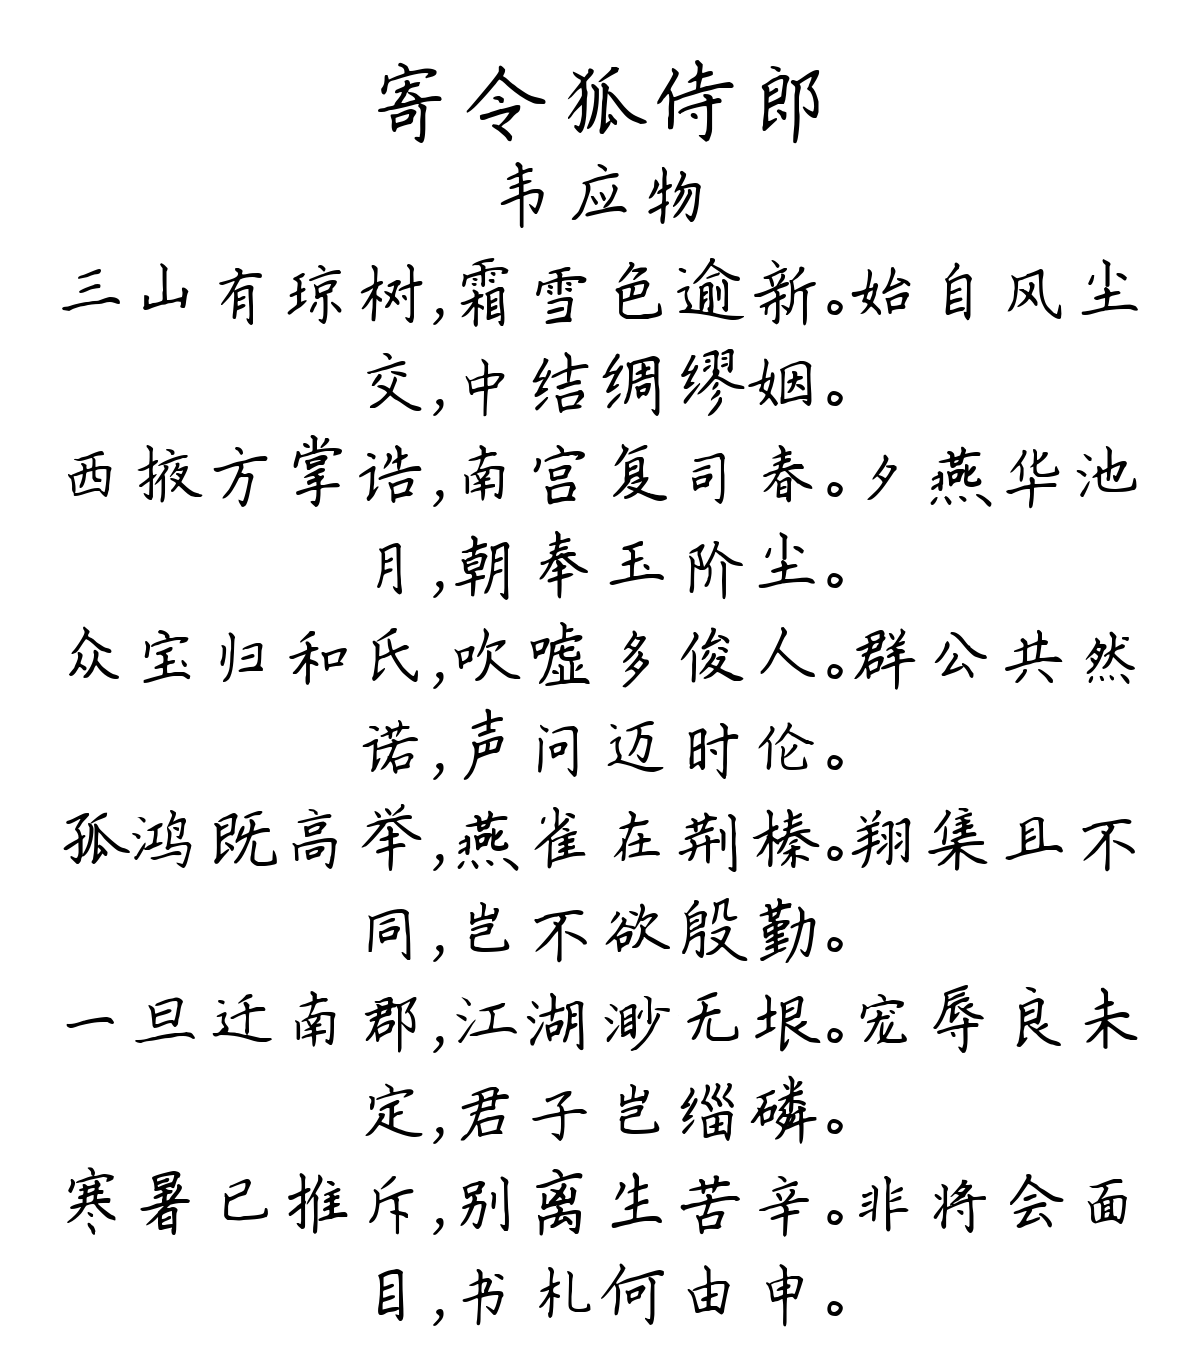 寄令狐侍郎
韦应物
三山有琼树,霜雪色逾新。始自风尘
交,中结绸缪姻。
西掖方掌诰,南宫复司春。夕燕华池
月,朝奉玉阶尘。
众宝归和氏,吹嘘多俊人。群公共然
诺,声问迈时伦。
孤鸿既高举,燕雀在荆榛。翔集且不
同,岂不欲殷勤。
一旦迁南郡,江湖渺无垠。宠辱良未
定,君子岂缁磷。
寒暑已推斥,别离生苦辛。非将会面
目,书札何由申。